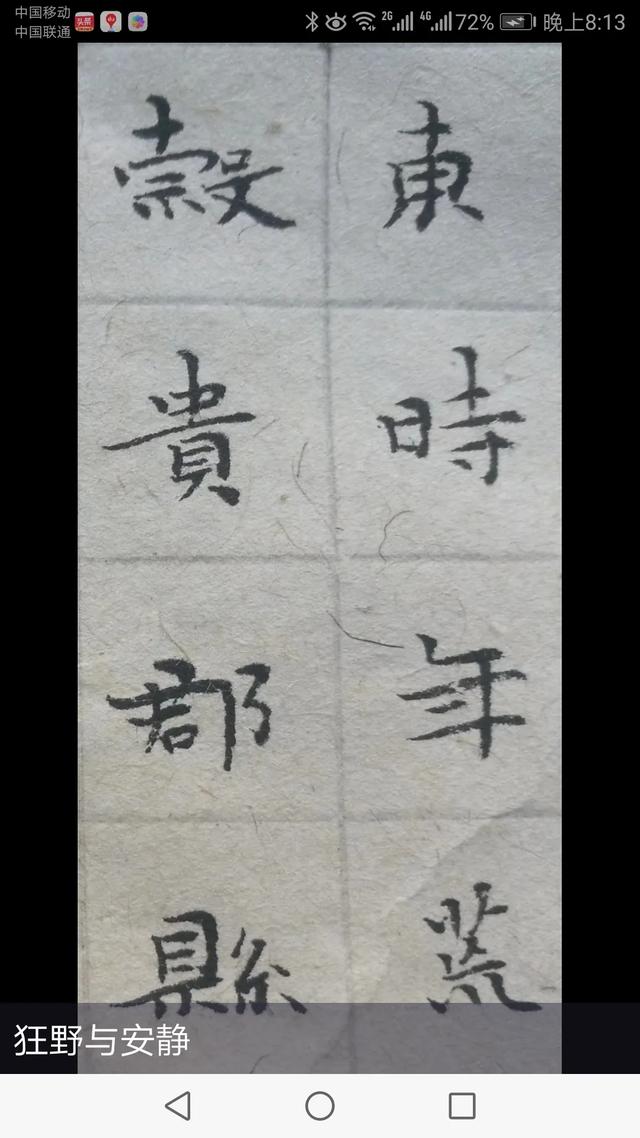 中国移动 2G 4G 72% 晚上8:13
中国联通
头条
東時年荒
穀貴郡縣
狂野与安静